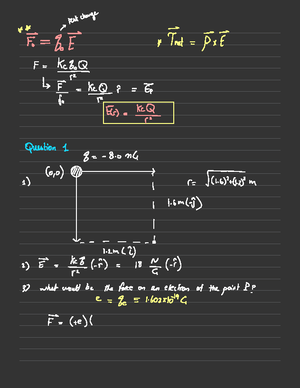 test charge
** F₀ = q₀ E
* τnet = P × E
F = kc q₀ Q / r²
↳ F / q₀ = kc Q / r² ? = E
E(r) = kc Q / r²
Question 1
q = -8.0 nC
(0,0)
1)
r = √((1.6)²+(1.2)²) m
1.6m(ĵ)
1.2m(î)
2) E = kc q / r² (-r̂) = 18 N/C (-r̂)
3) what would be the force on an electron at the point P?
e = qe = 1.602x10⁻¹⁹ C
F = (+e)(